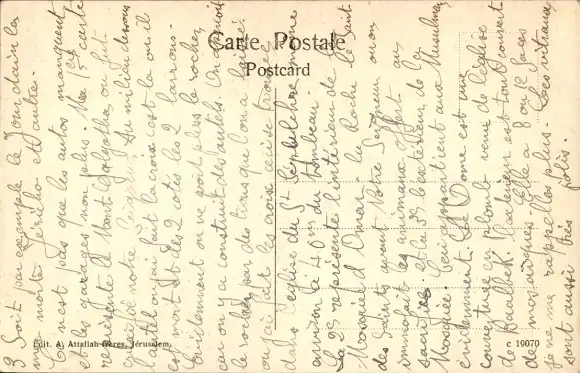 Carte Postale
Postcard
3 Soit par exemple le Jourdain la
mer morte Jéricho et autre.
Ce n'est pas que les autos manquent
et les garages non plus. Ma 1 carte est
représente le Mont Golgotha ou fut
crucifié notre Seigneur. Au milieu dessous
l'autel ou j'ai fait la croix c'est la ou il
est mort et des 2 cotés les 2 larrons.
Evidemment on ne voit plus le rocher
car on y a construit des autels. On aperçoit
le rocher par des trous que l'on a laissé
ou j'ai fait les croix cerise trouvée
dans l'église du St Sépulchre même
environ à 40 m du Tombeau.
La 2e représente l'intérieur de la
Mosquée d'Omar. La Roche le Saint
des Saints avant Notre Seigneur ou on
immolait les animaux offert au
sacrifice et la 3e l'extérieur de la
Mosquée. Ceci appartient aux Musulmans
évidemment. Le Dôme est une
couverture en plomb venu de l'église
de Baalbek. L'extérieur est tout couvert
de mosaïques. Elle a 8 ou 12 faces
je ne me rappelle plus. Les vitraux
sont aussi très jolis.
Édit. A. Attallah frères, Jérusalem.
c 19070